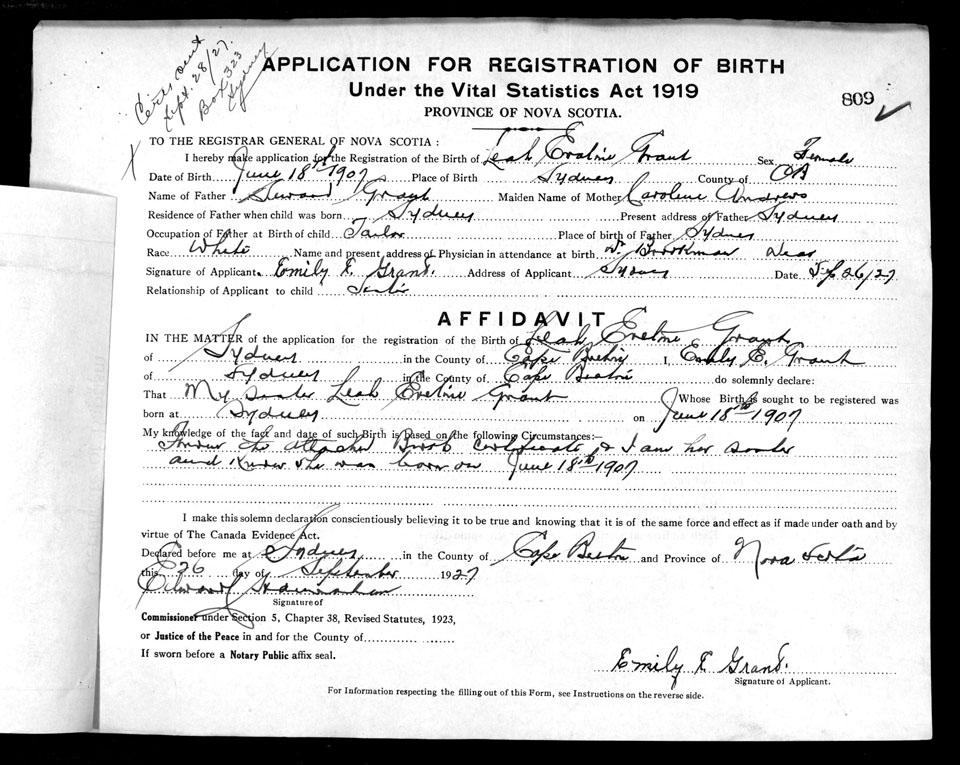 Cert sent
Sept. 28/27.
Box 323
Sydney
APPLICATION FOR REGISTRATION OF BIRTH
Under the Vital Statistics Act 1919
PROVINCE OF NOVA SCOTIA.
809 ✓
TO THE REGISTRAR GENERAL OF NOVA SCOTIA :
X I hereby make application for the Registration of the Birth of Leah Eveline Grant Sex Female
Date of Birth June 18th 1907 Place of Birth Sydney County of CB
Name of Father Grant Maiden Name of Mother Caroline Andrews
Residence of Father when child was born Sydney Present address of Father Sydney
Occupation of Father at Birth of child Tailor Place of birth of Father Sydney
Race White Name and present address of Physician in attendance at birth Dr Brookman Dead
Signature of Applicant Emily E. Grant. Address of Applicant Sydney Date Sep 26/27
Relationship of Applicant to child
AFFIDAVIT
IN THE MATTER of the application for the registration of the Birth of Leah Eveline Grant
of Sydney in the County of Cape Breton I, Emily E. Grant
of Sydney in the County of Cape Breton do solemnly declare:
That My sister Leah Eveline Grant Whose Birth is sought to be registered was
born at Sydney on June 18th 1907
My knowledge of the fact and date of such Birth is based on the following Circumstances:—
the attached Birth Certificate & I am her sister
and know she was born on June 18th 1907
I make this solemn declaration conscientiously believing it to be true and knowing that it is of the same force and effect as if made under oath and by
virtue of The Canada Evidence Act.
Declared before me at Sydney in the County of Cape Breton and Province of Nova Scotia
this 26 day of September 1927
Signature of
Commissioner under Section 5, Chapter 38, Revised Statutes, 1923,
or Justice of the Peace in and for the County of
If sworn before a Notary Public affix seal.
Emily E Grant.
Signature of Applicant.
For Information respecting the filling out of this Form, see Instructions on the reverse side.